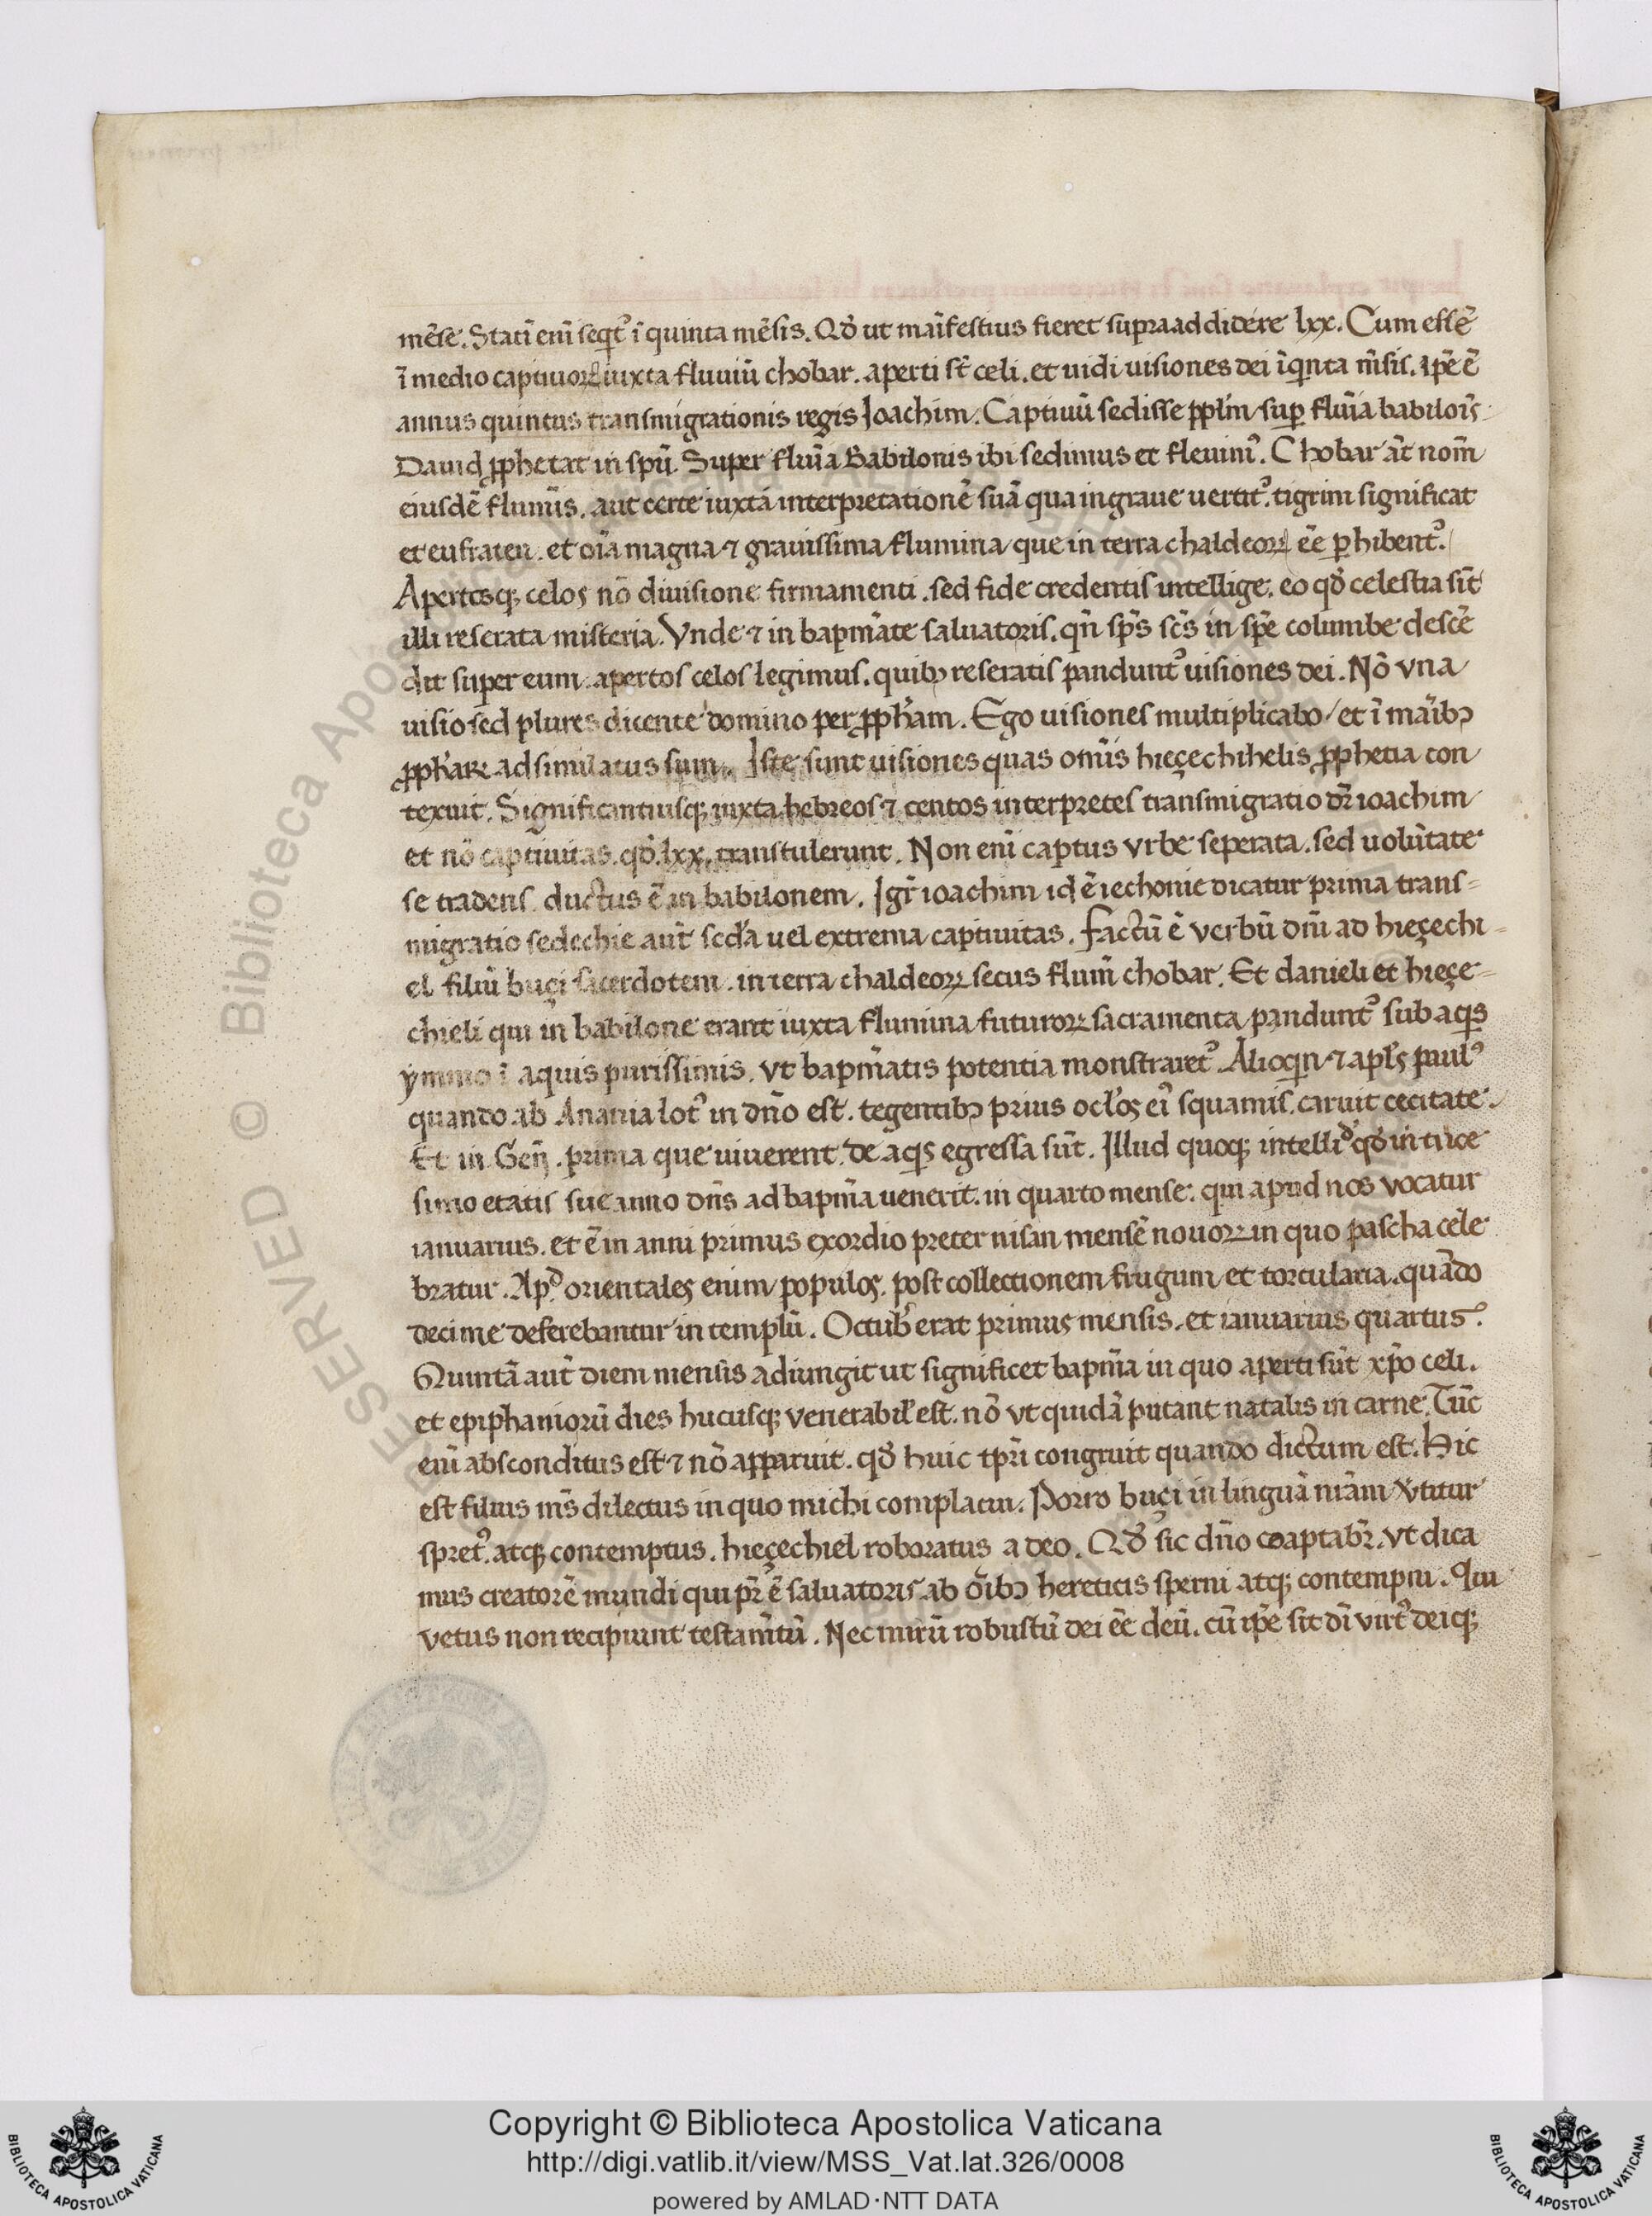 mēse. Statī enī seqt᷒ ī quinta mēsis. Qđ ut maīfestius fieret supra addidere lxx. Cum essē
ī medio captiuoꝝ iuxta fluuiū chobar. aperti st̄ celi. et uidi uisiones dei ī qnta m̄sis. ip̄e ē
annus quintus transmigrationis regis Joachim. Captiuū sedisse ppl̄m sup̄ flum̄a babilois̄
Dauid ꝓphetat in sp̄u. Super flum̄a Babilonis ibi sedimus et fleuim᷒. Chobar at̄ nom̄
eiusdē flumīs. aut certe iuxta interpretationē suā qua in graue uertit᷒. tigrim significat
et eufraten. et oīa magna ⁊ grauissima flumina que in terra chaldeoꝝ ēe ꝑhibent᷒.
Apertosqꝫ celos nō diuisione firmamenti. sed fide credentis intellige. eo qđ celestia sūt
illi reserata misteria. Vnde ⁊ in bapm̄ate saluatoris. qn̄ sp̄s sc̄s in sp̄e columbe descē
dit super eum. apertos celos legimus. quibꝫ reseratis pandunt᷒ uisiones dei. Nō vna
uisio sed plures dicente domino per ꝓph̄am. Ego uisiones multiplicabo et ī māibꝫ
ꝓph̄aꝝ adsimilatus sum. Iste sunt uisiones quas omīs hieçechihelis ꝓphetia con
texuit. Significantiusqꝫ iuxta hebreos ⁊ ceteros interpretes transmigratio dr̄ ioachim
et nō captiuitas. qđ. lxx. transtulerunt. Non enī captus vrbe seperata. sed uolūtate
se tradens ductus ē in babilonem. Igr̄ ioachim id ē iechonie dicatur prima trans=
migratio sedechie aut̄ scd̄a uel extrema captiuitas. Factū ē verbū dn̄i ad hieçechi=
el filiū buçi sacerdotem. in terra chaldeoꝝ secus flum̄ chobar. Et danieli et hieçe=
chieli qui in babilone erant iuxta flumina futuroꝝ sacramenta pandunt᷒ sub aqs
ymmo ī aquis purissimis. vt bapm̄atis potentia monstraret᷒. Alioqn ⁊ apl̄s paul᷒
quando ab Anania lot᷒ in dn̄o est. tegentibꝫ prius ocl̄os ei᷒ squamis. caruit cecitate.
Et in Gen̄. prima que uiuerent de aqs egressa sūt. Illud quoqꝫ intelliđ qđ in trice
simo etatis sue anno dn̄s ad bapm̄a uenerit. in quarto mense. qui apud nos vocatur
ianuarius. et ē in anni primus exordio preter nisan mensē nouoꝝ in quo pascha cele
bratur. Apđ orientales enim populos. post collectionem frugum et torcularia. quādo
decime deferebantur in templū. Octub̄ erat primus mensis. et ianuarius quartus.
Quintā aut̄ diem mensis adiungit ut significet bapm̄a in quo aperti sūt xp̄o celi.
et epiphaniorū dies hucusqꝫ venerabil̄ est. nō vt quidā putant natalis in carne. Tūc
enī absconditus est ⁊ nō apparuit. qđ huic tp̄ri congruit quando dictum est. Hic
est filius ms̄ dilectus in quo michi complacui. Porro buçi in linguā nr̄am v̄titur
spret᷒. atqꝫ contemptus. hieçechiel roboratus a deo. Qđ sic dn̄o coaptabr̄. vt dica
mus creatorē mundi qui pr̄ ē saluatoris ab oībꝫ hereticis sperni atqꝫ contempni. Qui
vetus non recipiunt testam̄tū. Nec mirū robustū dei ēe deū. cū ip̄e sit dī virt᷒ deiqꝫ
Copyright © Biblioteca Apostolica Vaticana
http://digi.vatlib.it/view/MSS_Vat.lat.326/0008
powered by AMLAD·NTT DATA
BIBLIOTECA APOSTOLICA VATICANA
BIBLIOTECA APOSTOLICA VATICANA